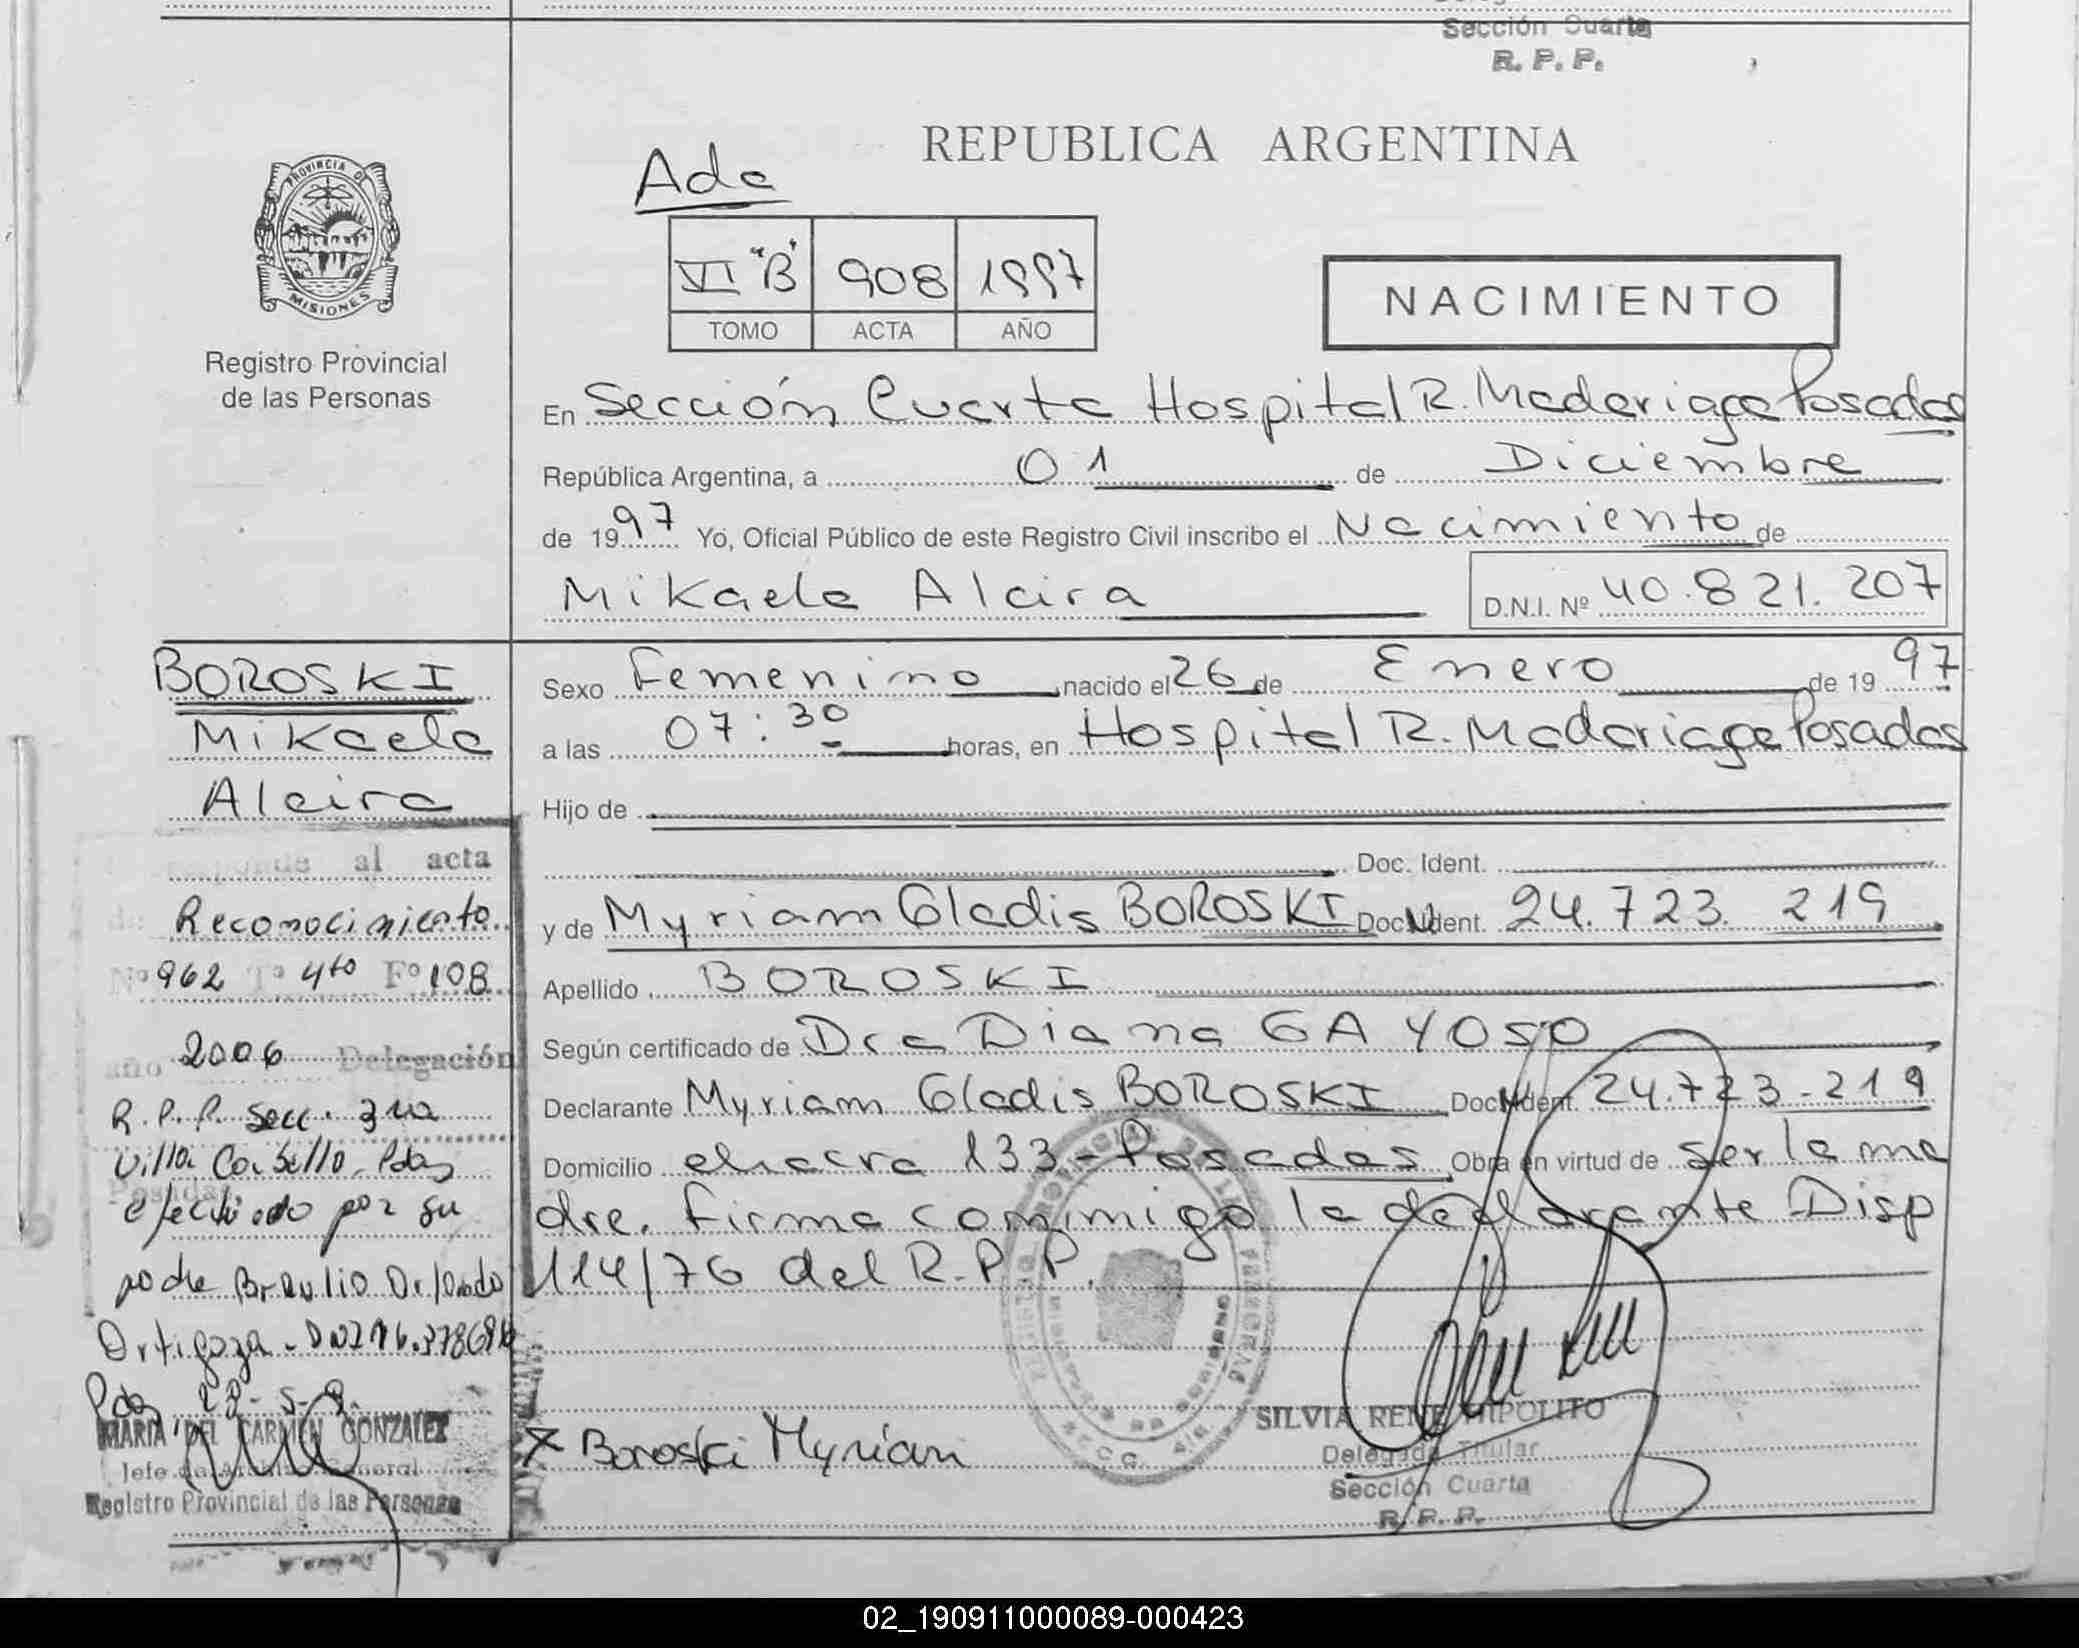 Sección Cuarta
R. P. P.
PROVINCIA D
MISIONES
Registro Provincial
de las Personas
REPUBLICA ARGENTINA
Ada
VI "B" 908 1997
TOMO ACTA AÑO
NACIMIENTO
En Sección Cuarta Hospital R. Madariaga Posadas
República Argentina, a 01 de Diciembre
de 1997 Yo, Oficial Público de este Registro Civil inscribo el Nacimiento de
Mikaela Alcira D.N.I. Nº 40.821.207
BOROSKI
Mikaela
Alcira
Sexo Femenino nacido el 26 de Enero de 1997
a las 07:30 horas, en Hospital R. Madariaga Posadas
Hijo de
Doc. Ident.
y de Myriam Gladis BOROSKI Doc. Ident. 24.723.219
Apellido BOROSKI
Según certificado de Dra Diana GAYOSO
Declarante Myriam Gladis BOROSKI Doc. Ident. 24.723-219
Domicilio chacra 133-Posadas Obra en virtud de ser la ma
dre. Firma conmimigo la declarante Disp
114/76 del R.P.P.
al acta
de Reconocimiento
Nº 962 Tº 4to Fº 108
año 2006 Delegación
R.P.P. Secc. 3ra
Villa Cabello, Pdas
Posadas
efectuado por su
padre Braulio Orlando
Ortigoza - DNI
Pdas
MARIA DEL CARMEN GONZALEZ
Jefe de Archivo General
Registro Provincial de las Personas
X Boroski Myriam
SILVIA RENE HIPOLITO
Delegada Titular
Sección Cuarta
R. P. P.
02_190911000089-000423